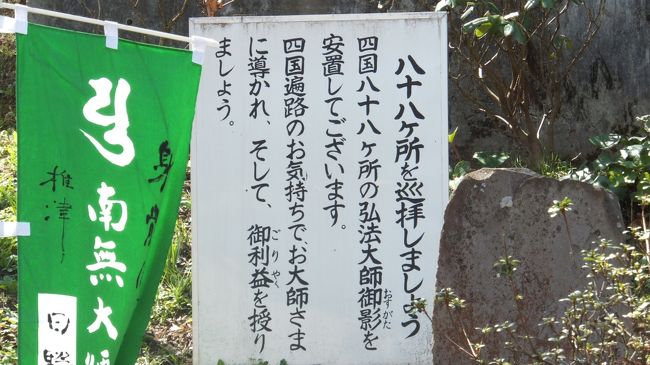 八十八ヶ所を巡拝しましょう
四国八十八ヶ所の弘法大師御影を
おすがた
安置してございます。
四国遍路のお気持ちで、お大師さま
に導かれ、そして、御利益を授り
ごりやく
ましょう。
南無大師